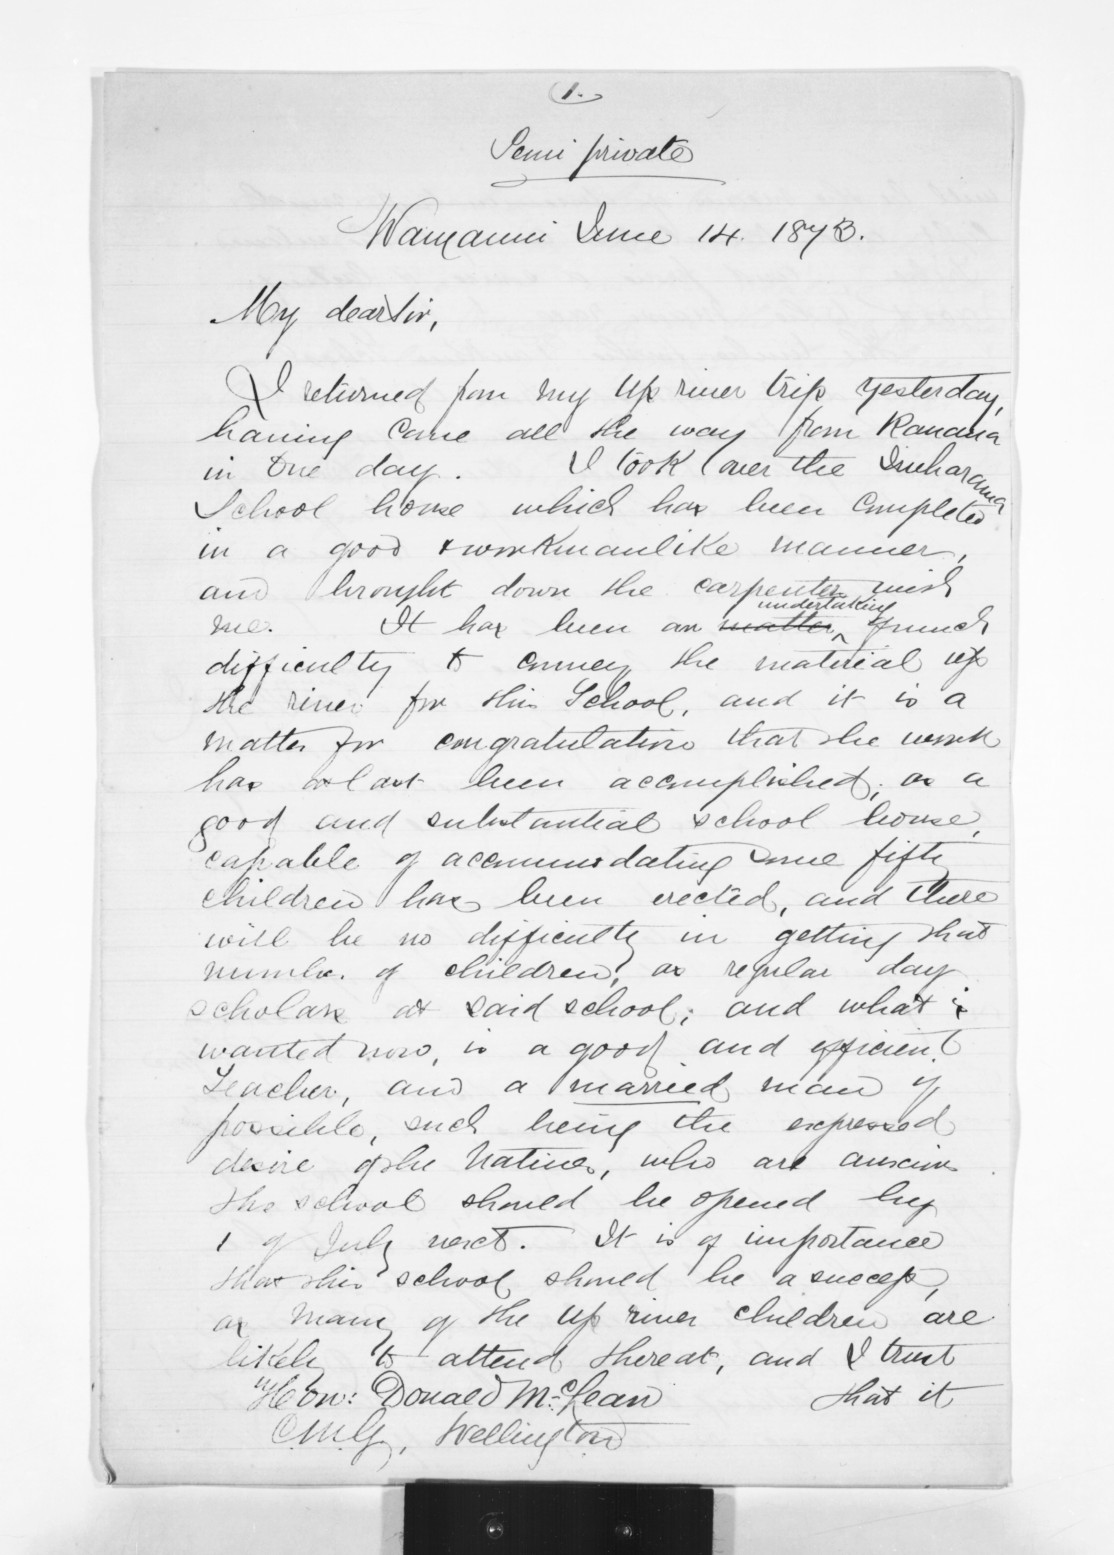 1.
Semi private
Wanganui June 14. 1873.
My dear Sir,
I returned from my up river trip yesterday,
having come all the way from Ranana
in one day. I took over the Iruharama
School house which has been completed
in a good & workmanlike manner,
and brought down the carpenter with
me. It has been an matter undertaking of much
difficulty to convey the material up
the river for this School, and it is a
matter for congratulation that the work
has at last been accomplished; as a
good and substantial school house,
capable of accommodating some fifty
children has been erected, and there
will be no difficulty in getting that
number of children, as regular day
scholars at said school; and what is
wanted now, is a good and efficient
Teacher, and a married man if
possible, such being the expressed
desire of the Natives, who are anxious
the school should be opened by
1 of July next. It is of importance
that this school should be a success,
as many of the up river children are
likely to attend thereat, and I trust
that it
Hon: Donald McLean
C.M.G, Wellington